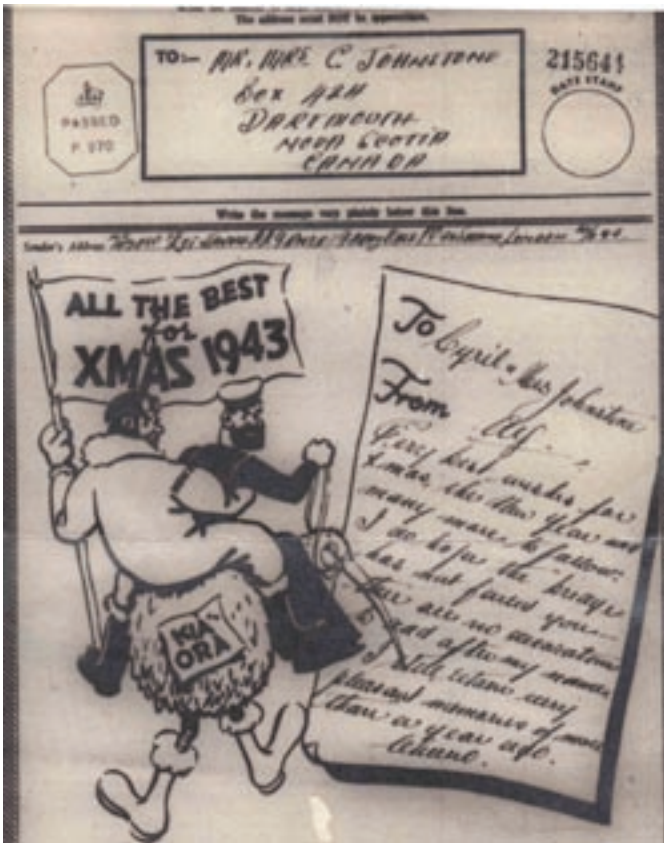 The address must NOT be typewritten.
TO:- MR. MRS C JOHNSTONE
Box 424
DARTMOUTH
NOVA SCOTIA
CANADA
PASSED
P. 970
215641
DATE STAMP
Write the message very plainly below this line.
Sender's Address
ALL THE BEST
for
XMAS 1943
KIA
ORA
To Cyril & Mrs Johnstone
From
Very best wishes for
Xmas, the New Year and
many more to follow.
I do hope the
has not you
There are no
after my
I still retain very
pleasant memories of more
than a year ago.